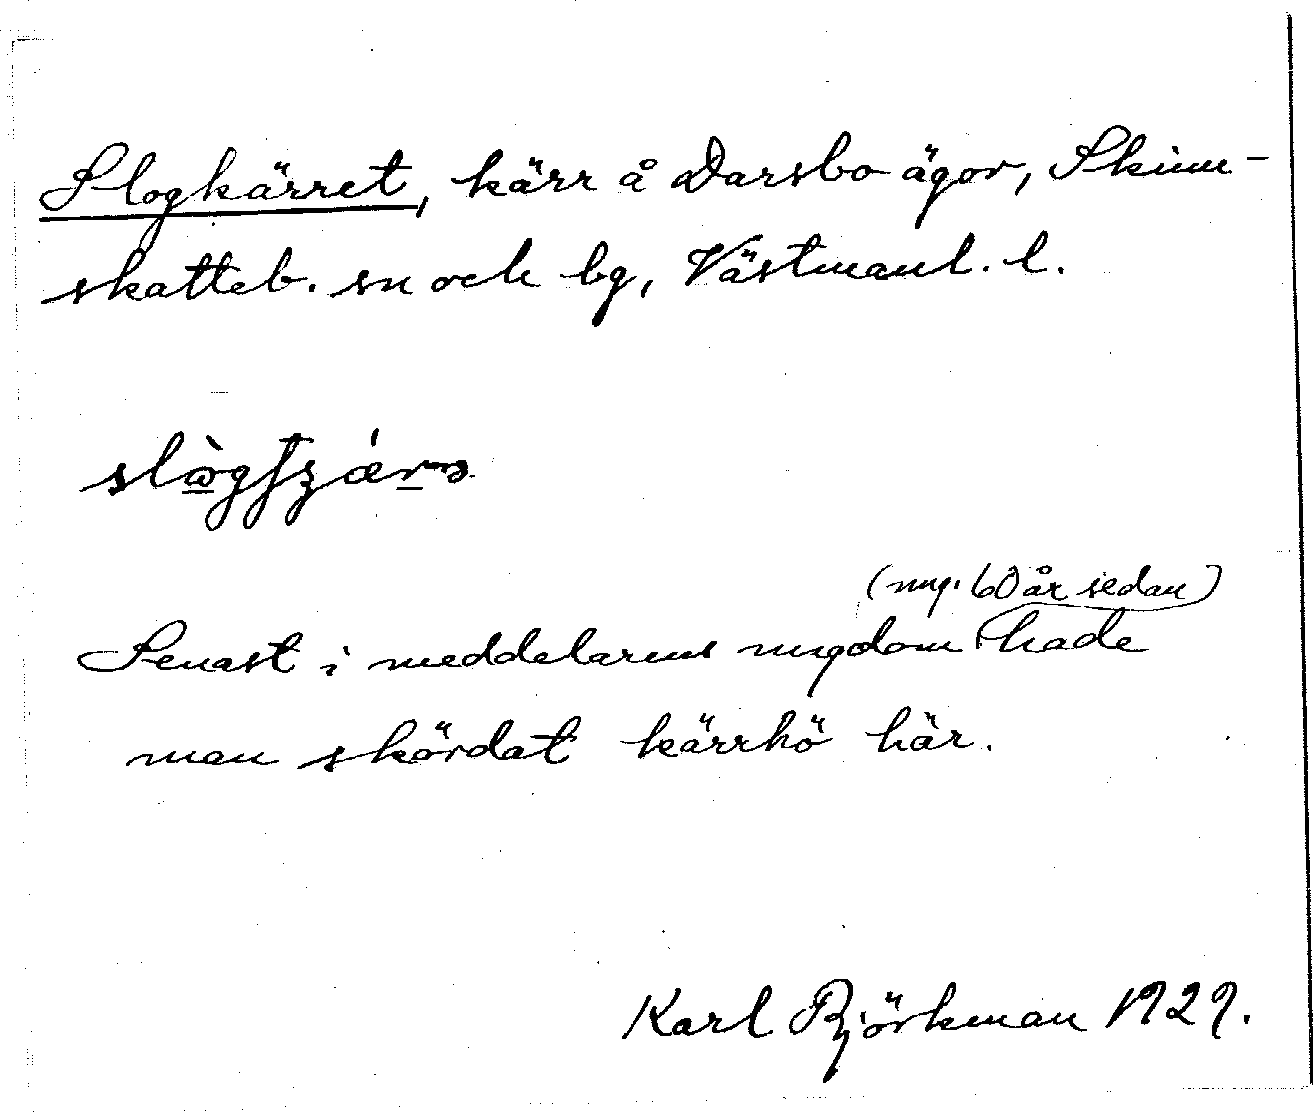 Slogkärret, kärr å Darsbo ägor, Skinn-
skatteb. sn och bg, Västmanl. l.
(ung. 60 år sedan)
Senast i meddelarens ungdom hade
man skördat kärrhö här.
Karl Björkman 1929.